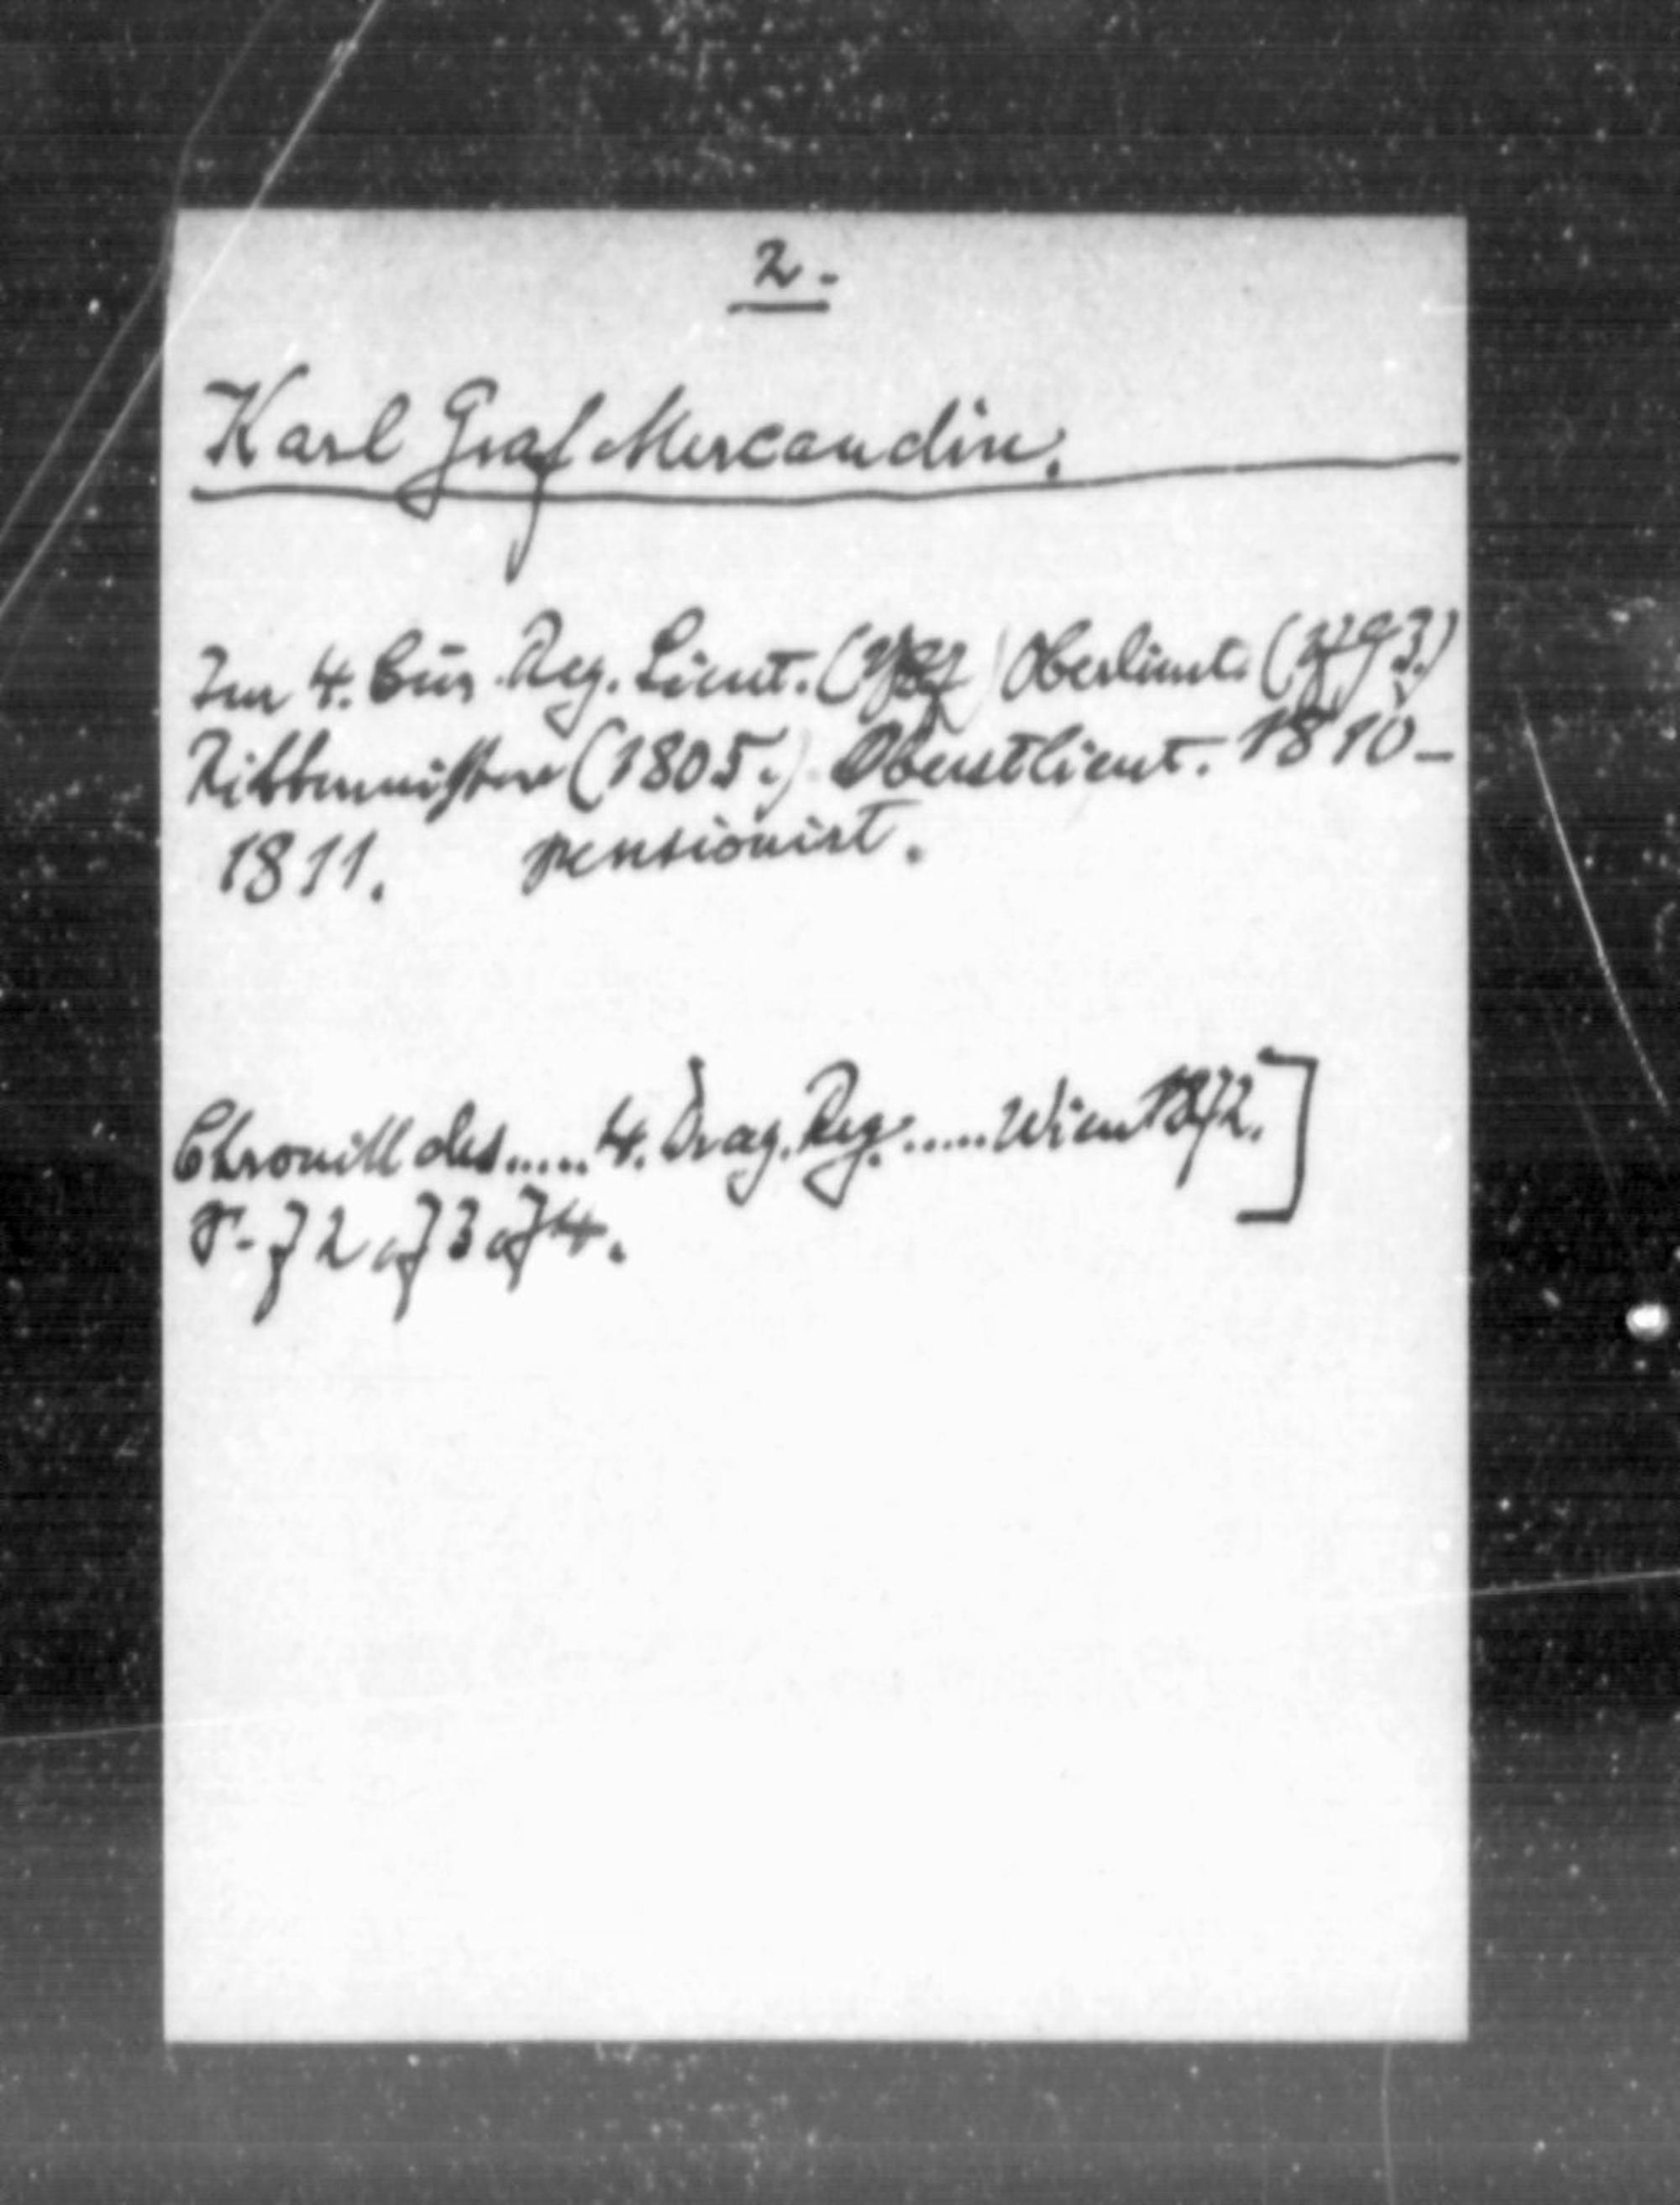 2.
Karl Graf Mercandin.
Im 4. Cür. Reg. Lieut. ( ) Oberlieut. (1793.)
Rittmeister (1805.) Oberstlieut. 1810-
1811. pensionirt.
Chronik des ..... 4. Drag. Reg. ..... Wien 1872.]
S. 72, 73, 74.